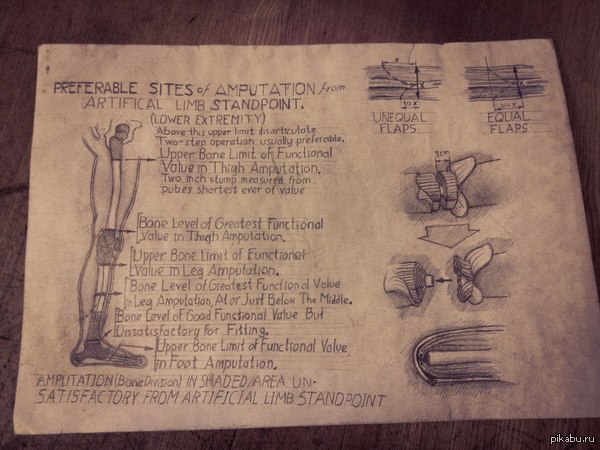 PREFERABLE SITES of AMPUTATION from
ARTIFICAL LIMB STANDPOINT.
(LOWER EXTREMITY)
Above this upper limit disarticulate
Two-step operation usually preferable.
Upper Bone Limit of Functional
Value in Thigh Amputation.
Two inch stump measured from
pubes shortest ever of value
Bone Level of Greatest Functional
Value in Thigh Amputation.
Upper Bone Limit of Functional
Value in Leg Amputation.
Bone Level of Greatest Functional Value
in Leg Amputation, At or Just Below The Middle.
Bone Level of Good Functional Value But
Unsatisfactory for Fitting.
Upper Bone Limit of Functional Value
in Foot Amputation.
AMPUTATION (Bone Division) IN SHADED AREA UN-
SATISFACTORY FROM ARTIFICIAL LIMB STANDPOINT
X
X
1/2 X
UNEQUAL
FLAPS
X
EQUAL
FLAPS
3cm
pikabu.ru